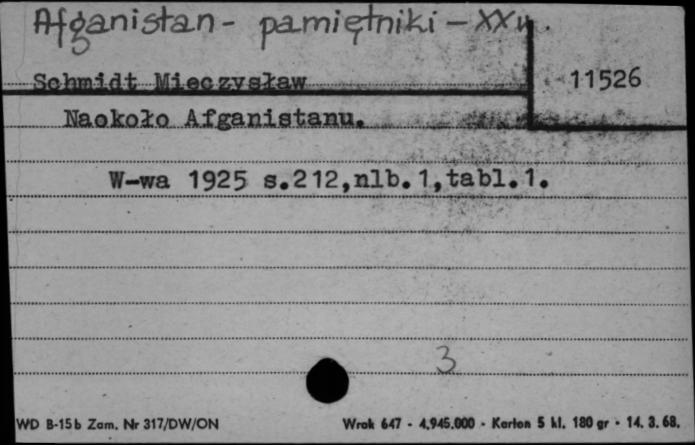 Afganistan - pamiętniki - XX w.
Schmidt Mieczysław
11526
Naokoło Afganistanu.
W-wa 1925 s.212,nlb.1,tabl.1.
3
WD B-15b Zam. Nr 317/DW/ON
Wrok 647 - 4.945.000 - Karton 5 kl. 180 gr - 14. 3. 68.